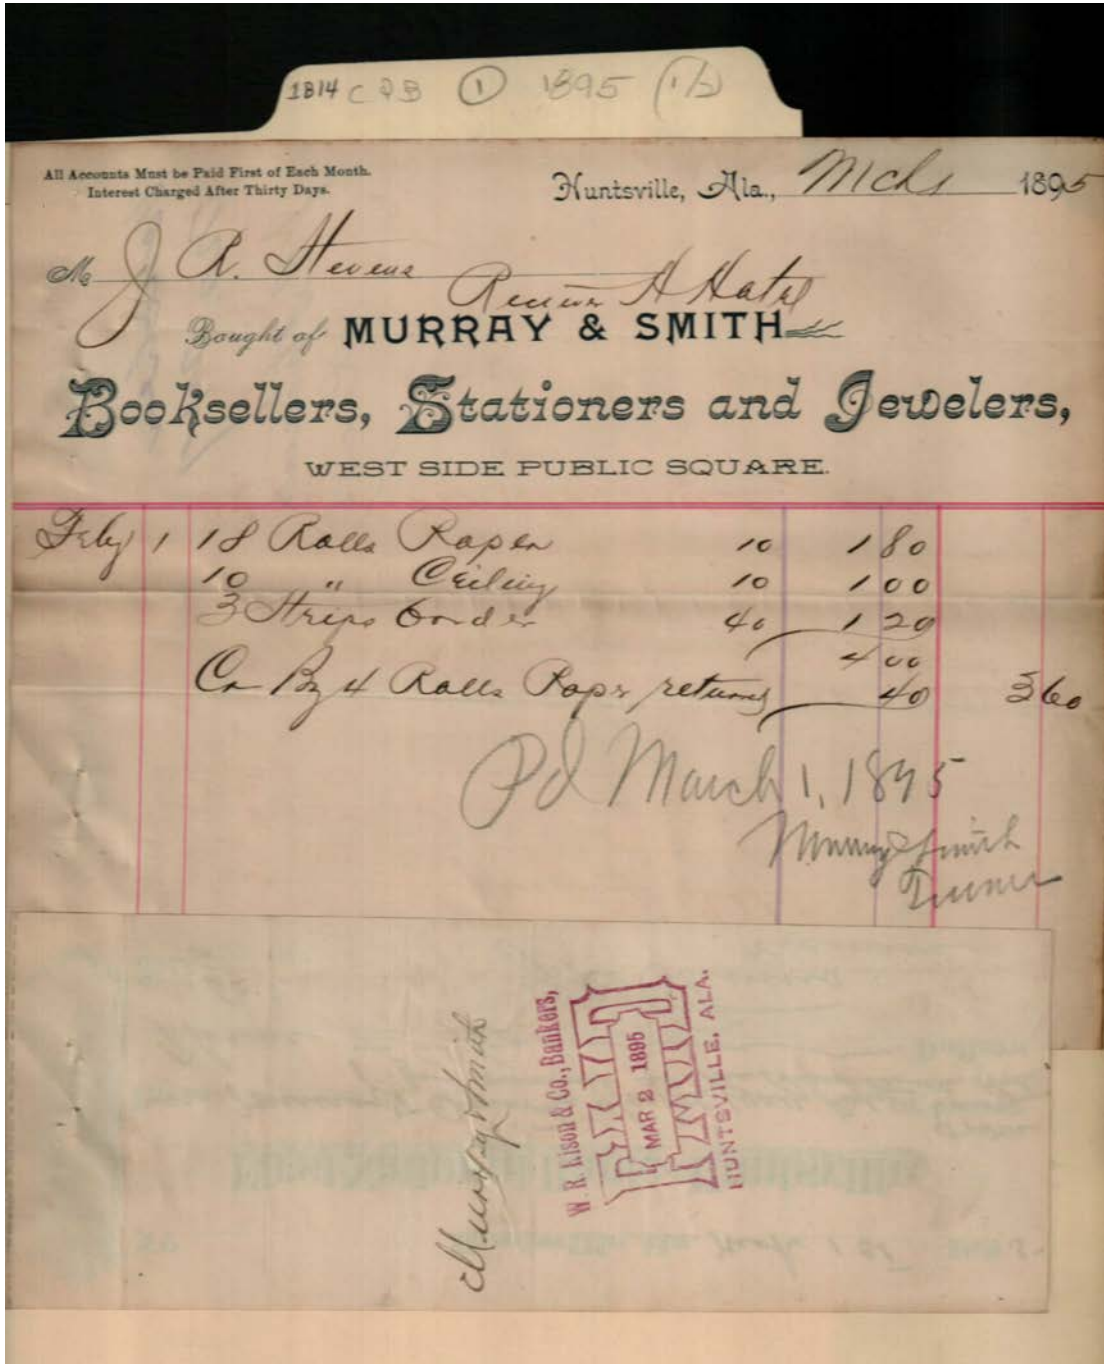 1814 C & B 1 1895 (1/2)
All Accounts Must be Paid First of Each Month.
Interest Charged After Thirty Days.
Huntsville, Ala., Mch 1 1895
M J R. Stevens
A Hotel
Bought of MURRAY & SMITH
Booksellers, Stationers and Jewelers,
WEST SIDE PUBLIC SQUARE.
Feby 1 18 Rolls Paper 10 1 80
10 " Ceiling 10 1 00
3 Strips Border 40 1 20
4 00
Cr By 4 Rolls Paper returned 40 3 60
Pd March 1, 1895
Murray & Smith
Murray & Smith
W. R. Rison & Co., Bankers,
PAID
MAR 2 1895
HUNTSVILLE, ALA.